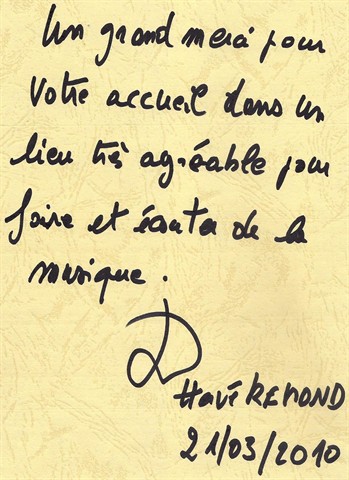 Un grand merci pour
votre accueil dans un
lieu très agréable pour
faire et écouter de la
musique.
Hervé REMOND
21/03/2010